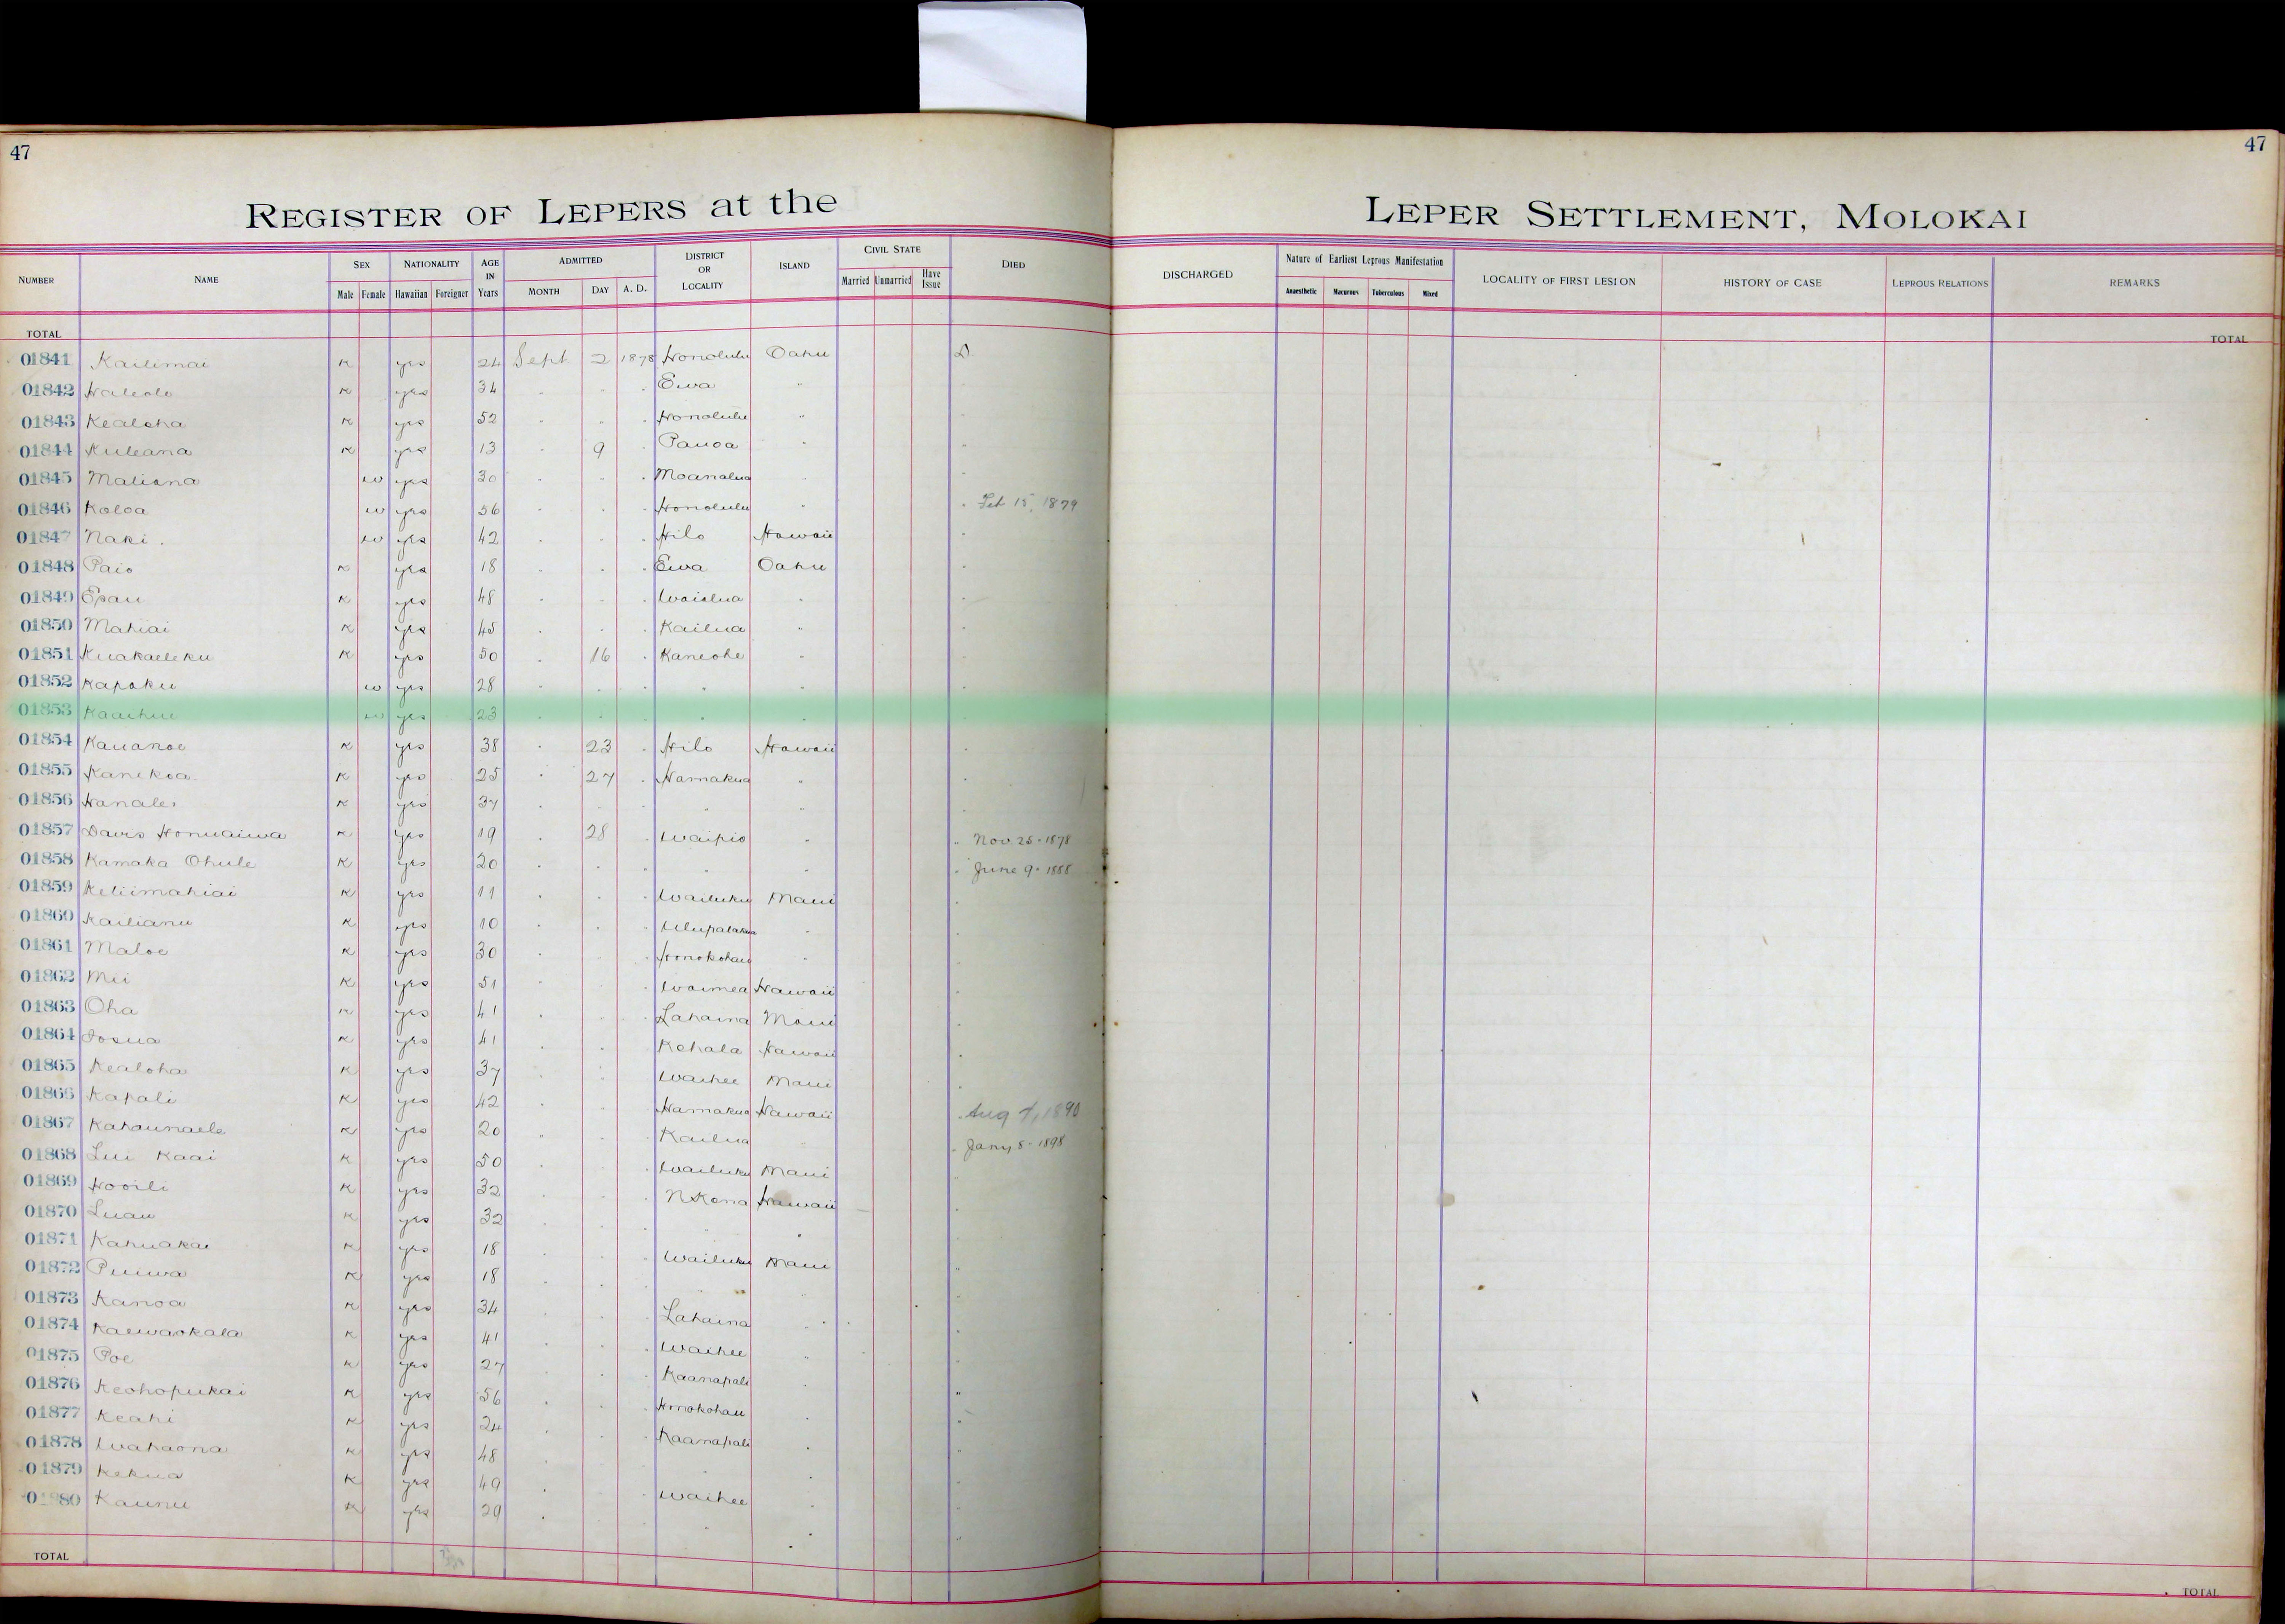 47
47
REGISTER OF LEPERS at the LEPER SETTLEMENT, MOLOKAI
NUMBER NAME SEX NATIONALITY AGE IN Years ADMITTED DISTRICT OR LOCALITY ISLAND CIVIL STATE DIED DISCHARGED Nature of Earliest Leprous Manifestation LOCALITY OF FIRST LESION HISTORY OF CASE LEPROUS RELATIONS REMARKS
Male Female Hawaiian Foreigner MONTH DAY A. D. Married Unmarried Have Issue Anaesthetic Macurous Tuberculous Mixed
TOTAL TOTAL
01841 Kailimai K yes 24 Sept 2 1878 Honolulu Oahu D
01842 Haleolo K yes 34 " " " Ewa "
01843 Kealoha K yes 52 " " " Honolulu "
01844 Kuleana K yes 13 " 9 " Pauoa " "
01845 Maliana w yes 30 " " " Moanalua " "
01846 Koloa w yes 56 " " " Honolulu " " Feb 15, 1879
01847 Naki w yes 42 " " " Hilo Hawaii "
01848 Paio K yes 18 " " " Ewa Oahu "
01849 Epau K yes 48 " " " Waialua " "
01850 Mahiai K yes 45 " " " Kailua " "
01851 Kuakaeleku K yes 50 " 16 " Kaneohe " "
01852 Kapoku w yes 28 " " " " " "
01853 Kaaihue w yes 23 " " " " " "
01854 Kauanoe K yes 38 " 23 " Hilo Hawaii "
01855 Kanekoa K yes 25 " 27 " Hamakua " "
01856 Hanalei K yes 37 " " " " " "
01857 Davis Honuaiwa K yes 19 " 28 " Waipio " " Nov 25 - 1878
01858 Kamaka Ohule K yes 20 " " " " " " June 9 - 1888
01859 Keliimahiai K yes 11 " " " Wailuku Maui "
01860 Kailianu K yes 10 " " " Ulupalakua " "
01861 Maloe K yes 30 " " " Honokohau " "
01862 Mii K yes 51 " " " Waimea Hawaii "
01863 Oha K yes 41 " " " Lahaina Maui "
01864 Iosua K yes 41 " " " Kohala Hawaii "
01865 Kealoha K yes 37 " " " Waihee Maui "
01866 Kapali K yes 42 " " " Hamakua Hawaii " Aug 7, 1890
01867 Kahaunaele K yes 20 " " " Kailua " " Jany 8 - 1898
01868 Lui Kaai K yes 50 " " " Wailuku Maui "
01869 Hooili K yes 32 " " " N Kona Hawaii "
01870 Luau K yes 32 " " " " " "
01871 Kahuakai K yes 18 " " " Wailuku Maui "
01872 Puiwa K yes 18 " " " " " "
01873 Kanoa K yes 34 " " " Lahaina " "
01874 Kaewaokala K yes 41 " " " Waihee " "
01875 Poe K yes 27 " " " Kaanapali " "
01876 Keohopukai K yes 56 " " " Honokohau " "
01877 Keahi K yes 24 " " " Kaanapali " "
01878 Wahaona K yes 48 " " " " " "
01879 Kekua K yes 49 " " " Waihee " "
01880 Kaunu K yes 29 " " " " " "
TOTAL TOTAL